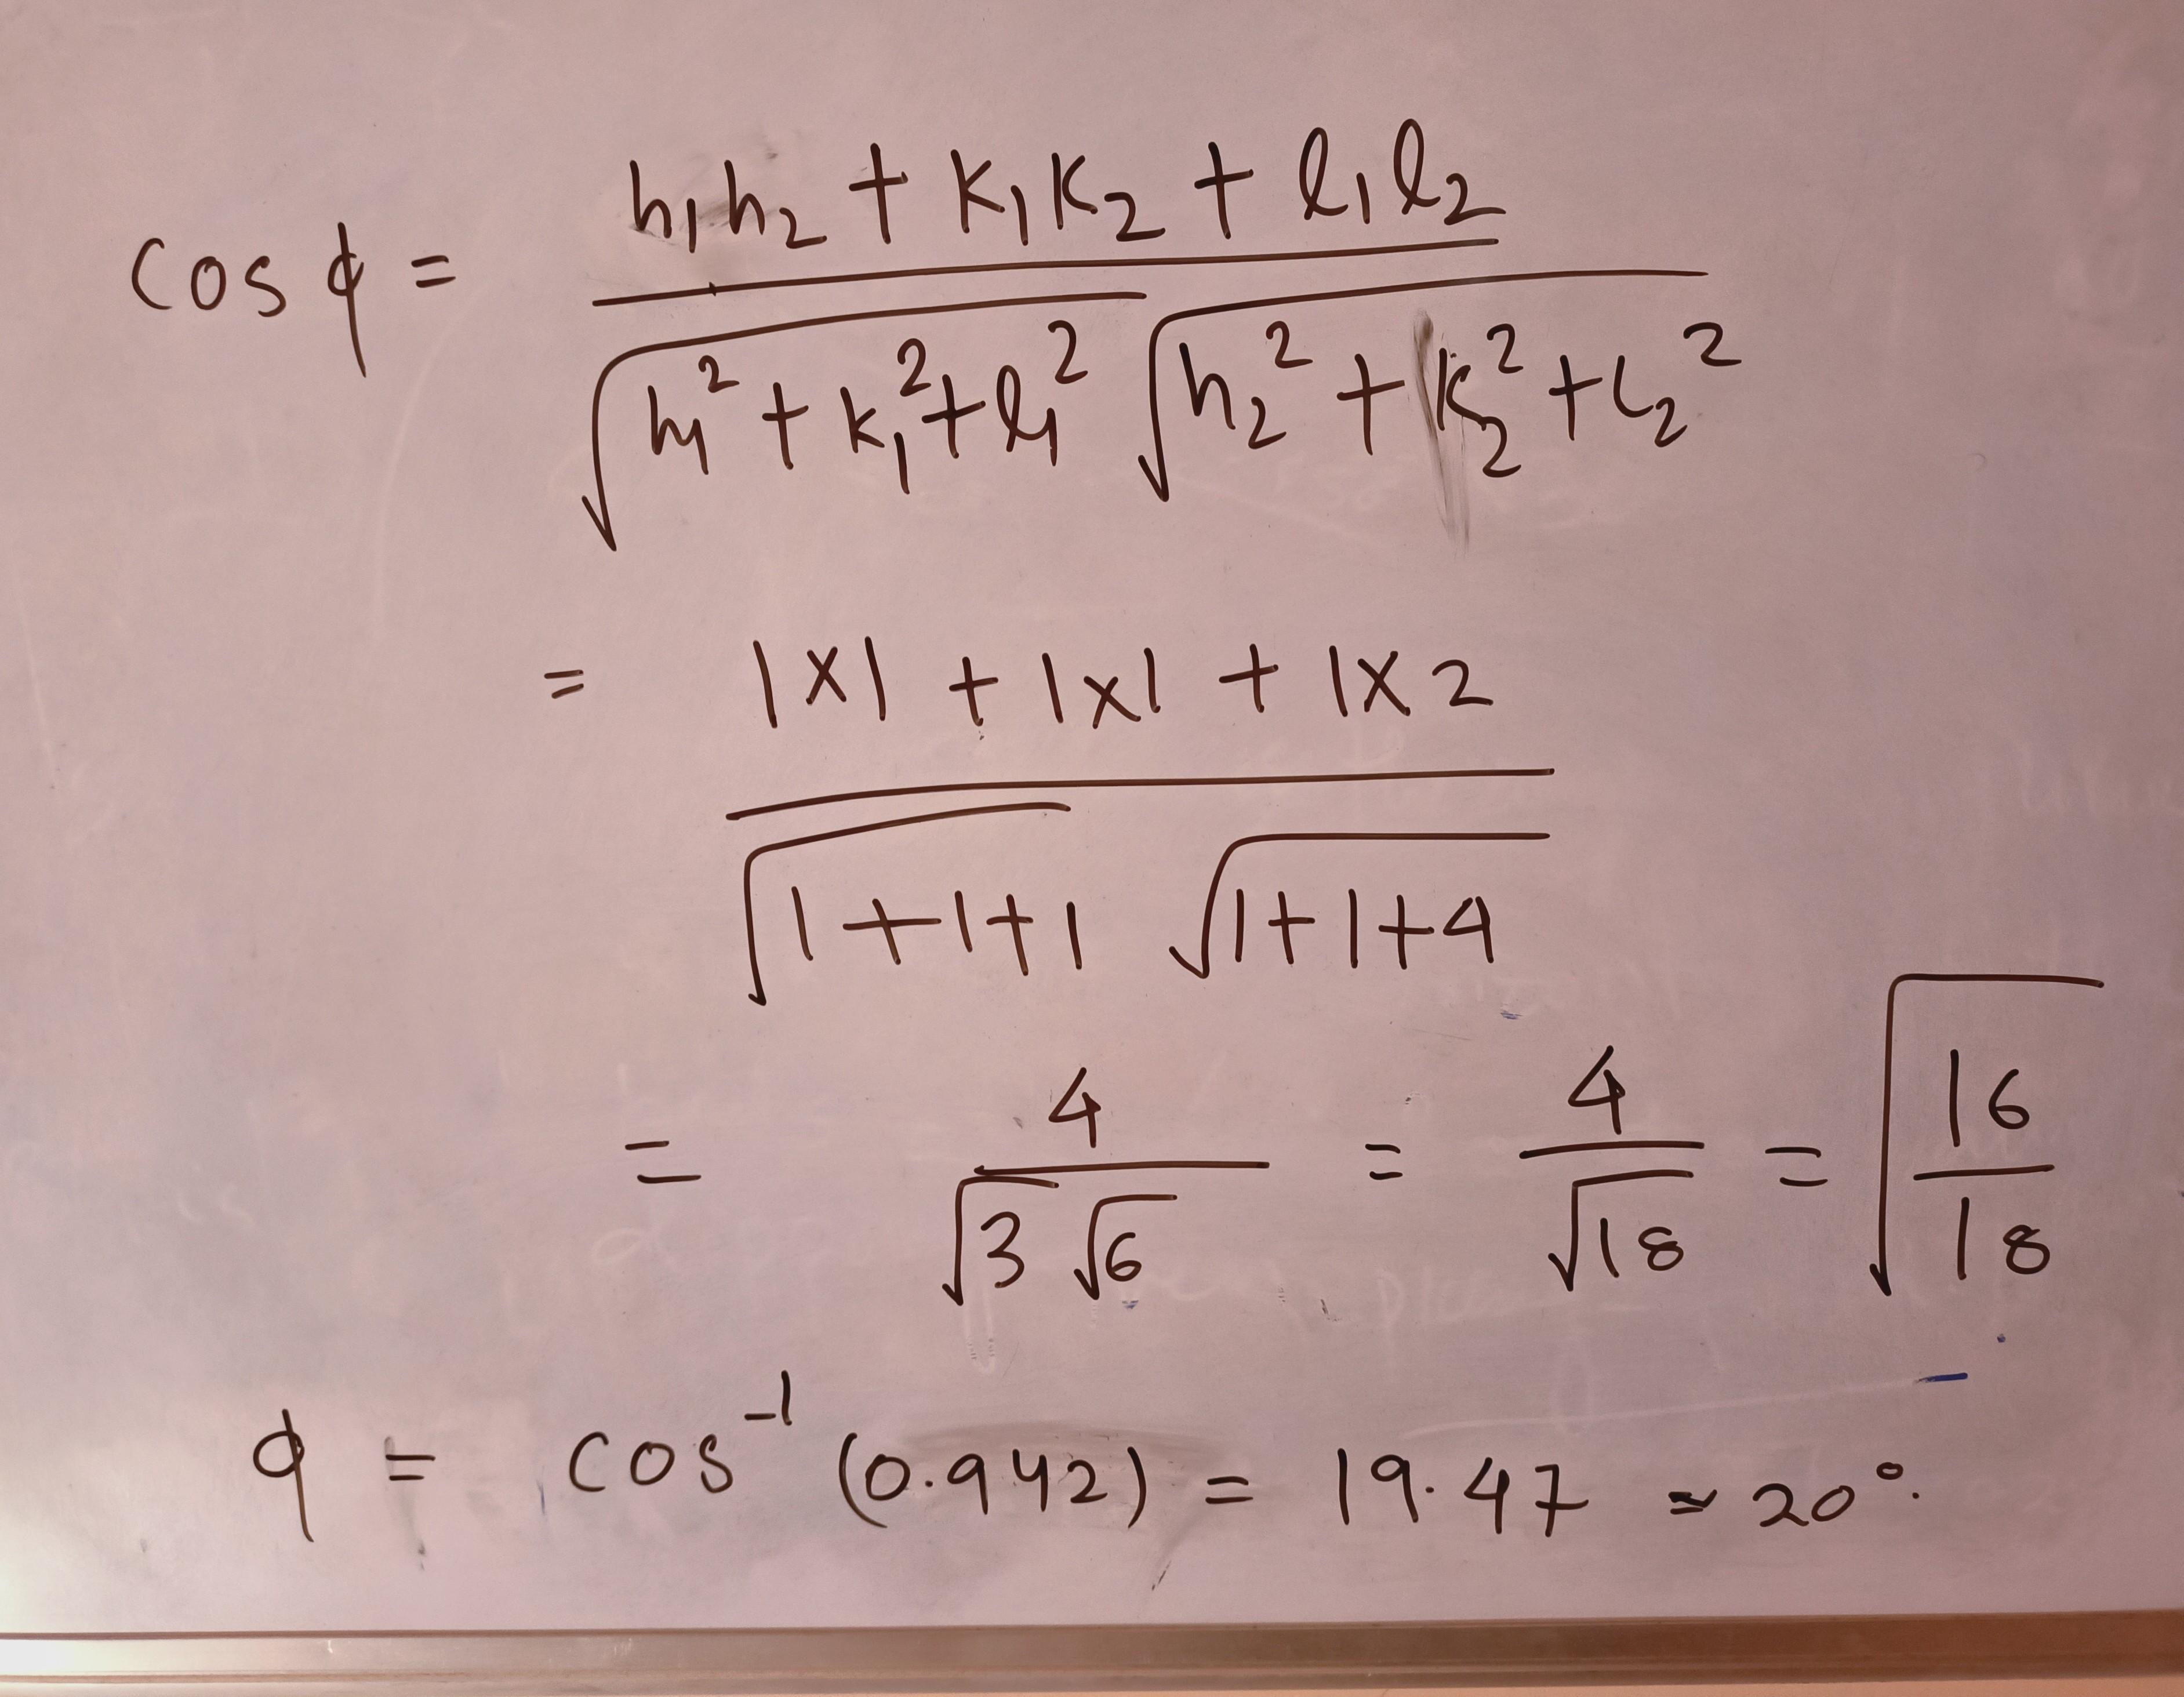 cos ϕ = (h₁h₂ + k₁k₂ + l₁l₂) / (√(h₁² + k₁² + l₁²) √(h₂² + k₂² + l₂²))
= (1×1 + 1×1 + 1×2) / (√(1+1+1) √(1+1+4))
= 4 / (√3 √6) = 4 / √18 = √(16/18)
ϕ = cos⁻¹ (0.942) = 19.47 ≈ 20°.